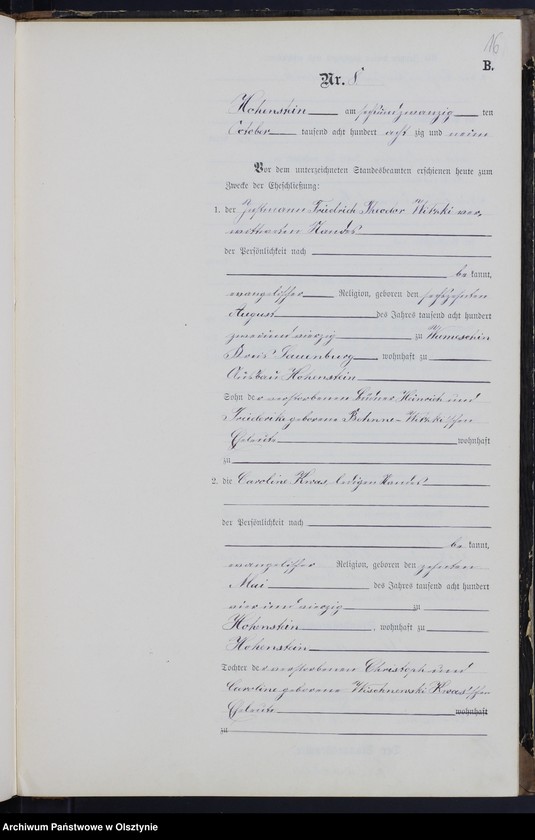 16
B.
Nr. 8
Hohenstein am sechsundzwanzig ten
October tausend acht hundert acht zig und neun
Vor dem unterzeichneten Standesbeamten erschienen heute zum
Zwecke der Eheschließung:
1. der Friedrich Theodor Witzki ver-
wittweten Standes
der Persönlichkeit nach
be kannt,
evangelischer Religion, geboren den sechszehnten
August des Jahres tausend acht hundert
zweiundvierzig zu
Kreis Lauenburg, wohnhaft zu
Ausbau Hohenstein
Sohn der verstorbenen Heinrich und
Friederike geborene Witzki'schen
Eheleute wohnhaft
zu
2. die Caroline Kwas, ledigen Standes
der Persönlichkeit nach
be kannt,
evangelischer Religion, geboren den zehnten
Mai des Jahres tausend acht hundert
vier und vierzig zu
Hohenstein, wohnhaft zu
Hohenstein
Tochter der verstorbenen Christoph und
Caroline geborene Wischnewski Kwas'schen
Eheleute wohnhaft
zu
Archiwum Państwowe w Olsztynie